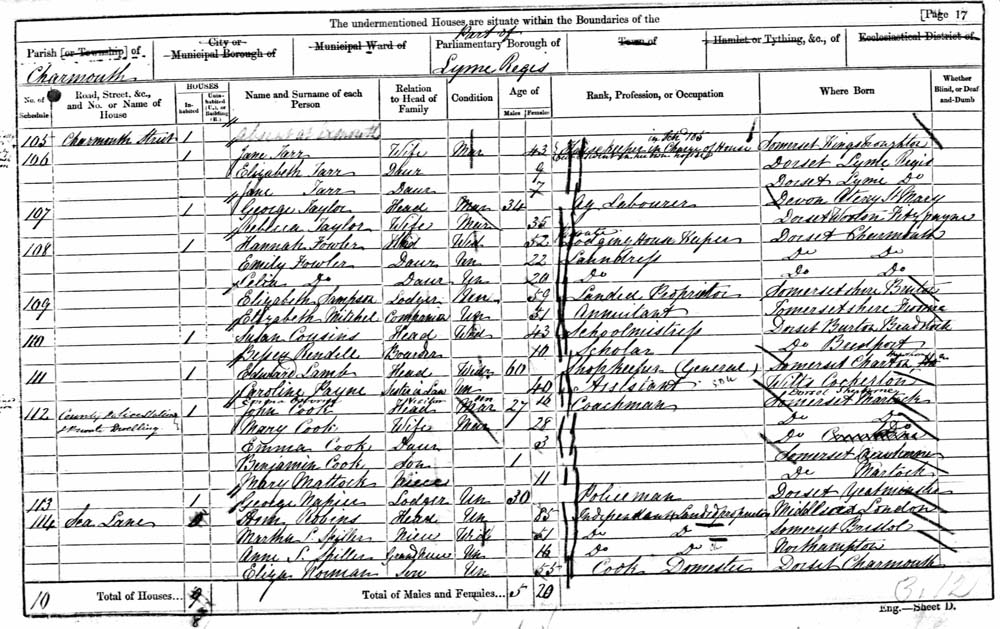 The undermentioned Houses are situate within the Boundaries of the [Page 17
Parish [or Township] of Charmouth
City or Municipal Borough of
Municipal Ward of
Part of Parliamentary Borough of Lyme Regis
Town of
Hamlet or Tything, &c., of
Ecclesiastical District of
No. of Schedule Road, Street, &c., and No. or Name of House HOUSES Inhabited Uninhabited (U.), or Building (B.) Name and Surname of each Person Relation to Head of Family Condition Age of Males Females Rank, Profession, or Occupation Where Born Whether Blind, or Deaf-and-Dumb
105 Charmouth Street 1 Absent at Exmouth
106 1 Jane Tarr Wife Mar 43 Housekeeper in Charge of House in Sch 105 Somerset
Elizabeth Tarr Daur 9 Dorset Lyme Regis
Jane Tarr Daur 7 Dorset Lyme Do
107 1 George Taylor Head Mar 34 Ag Labourer Devon Ottery St Mary
Rebecca Taylor Wife Mar 35 Dorset Wooton Fitzpayne
108 1 Hannah Fowler Head Wid 52 Private Lodging House Keeper Dorset Charmouth
Emily Fowler Daur Un 22 Laundress Do Do
Celia Do Daur Un 20 Do Do Do
Elizabeth Sampson Lodger Un 59 Landed Proprietor Somersetshire Bruton
109 Elizabeth Mitchel Companion Un 51 Annuitant Somersetshire
110 1 Susan Cousins Head Wid 43 Schoolmistress Dorset Burton Bradstock
Betsey Rendell Boarder 10 Scholar Do Beerport
111 1 Edward Lamb Head Widr 60 Shopkeeper (General) Somerset Charlton
Caroline Payne Sister in Law Un 40 Assistant Wilts
112 County Police Station & Private Dwelling 1 John Cook Head Mar 27 Coachman Somerset Martock
Mary Cook Wife Mar 28 Do Do
Emma Cook Daur 3 Do
Benjamin Cook Son 1 Somerset
Mary Mattock Niece 11 Do Martock
113 1 George Napier Lodger Un 30 Policeman Dorset Yetminster
114 Sea Lane Robins Head Un 85 Independent Landed Proprietor Middlesex London
Martha S. Spiller Niece Wid 51 Do Do Somerset Bristol
Anne S. Spiller Grand Niece Un 16 Do Do Northampton
Eliza Norman Serv Un 55 Cook Domestic Dorset Charmouth
10 Total of Houses... Total of Males and Females... 5 20
Eng.—Sheet D.